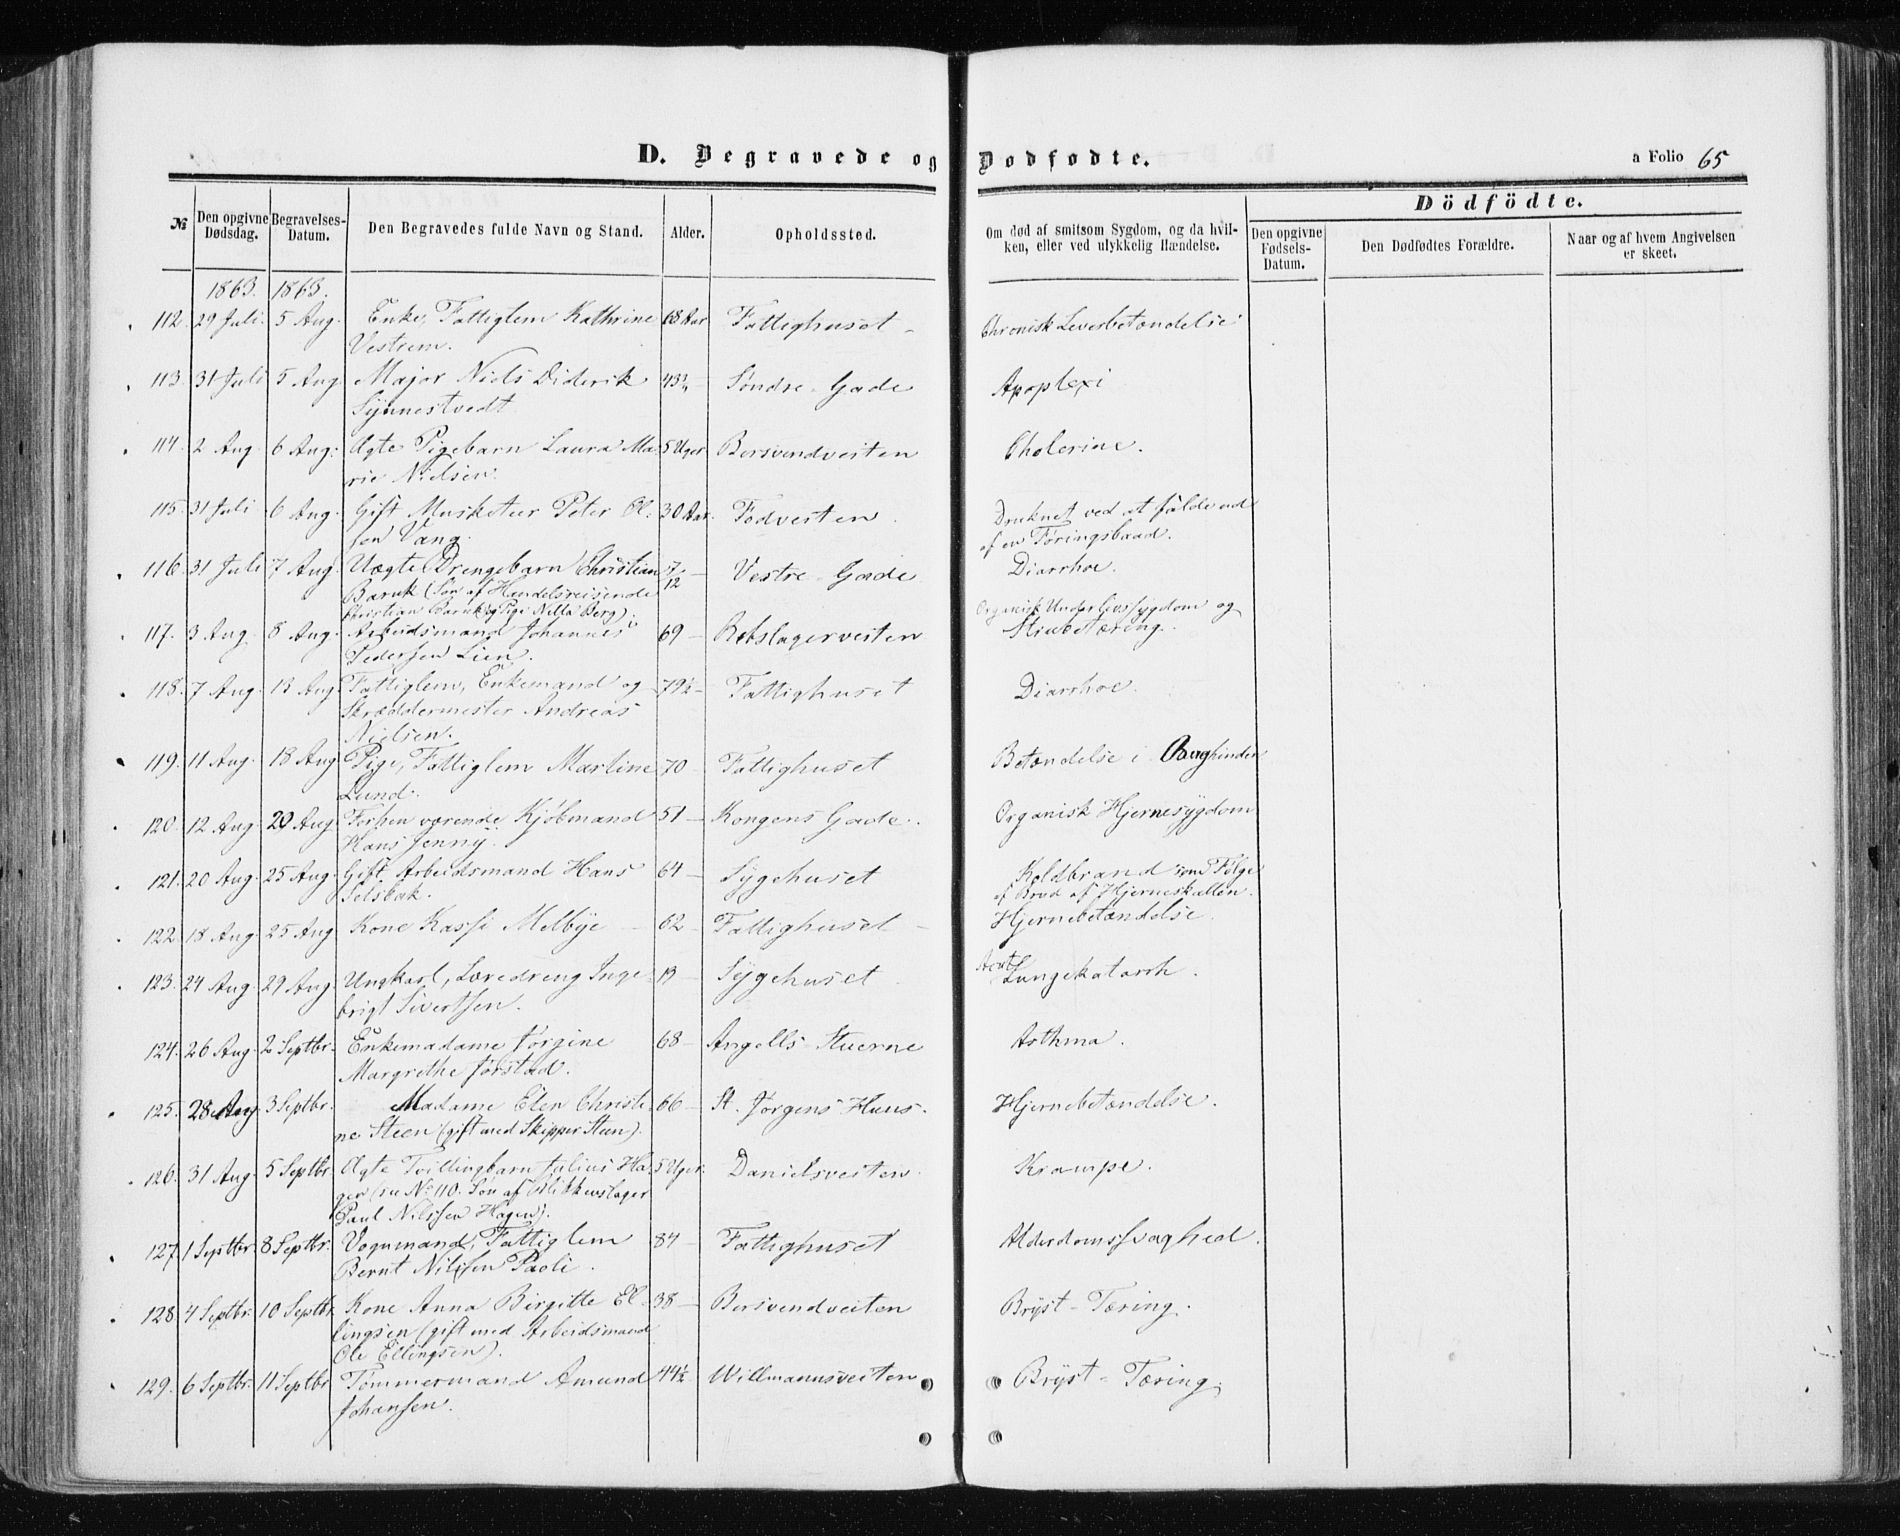 D. Begravede og Dødfødte.
a Folio 65
Dödfödte.
№
Den opgivne Dødsdag.
Begravelses-Datum.
Den Begravedes fulde Navn og Stand.
Alder.
Opholdssted.
Om død af smitsom Sygdom, og da hvil-
ken, eller ved ulykkelig Hændelse.
Den opgivne Fødsels-Datum.
Den Dødfødtes Forældre.
Naar og af hvem Angivelsen er skeet.
1863. 1863.
112. 29 Juli. 5 Aug. Enke, Fattiglem Kathrine 68 Aar Fattighuset Chronisk Leverbetændelse
Vestrem.
113. 31 Juli 5 Aug Major Niels Diderik 43¾ — Søndre Gade Apoplexi
Synnestvedt
114. 2 Aug 6 Aug: Ægte Pigebarn Laura Ma- 5 Uger Borsvendveiten Cholerine.
rie Nielsen.
115. 31 Juli 6 Aug. Gift Musketeer Peter Ol- 30 Aar. Fodveiten Druknet ved at falde ud
sen Vang. af en Føringsbaad.
116. 31 Juli 7 Aug. Uægte Drengebarn Christian 7/12 — Vestre Gade Diarrhoe.
Baruk (Søn af Handelsreisende
Christian Baruk og Pige Nilla Berg). Organisk Underlivssygdom og
117. 3 Aug. 8 Aug. Arbeidsmand Johannes 69 — Rebslagerveiten
Pedersen Lien.
118. 7 Aug. 13 Aug Fattiglem, Enkemand og 79½ — Fattighuset Diarrhoe.
Skræddermester Andreas
Nielsen.
119. 11 Aug. 18 Aug Pige, Fattiglem Martine 70 — Fattighuset Betændelse i Bughinden
Lund.
120. 12 Aug. 20 Aug. Forhen værende Kjøbmand 51 — Kongens Gade. Organisk Hjernesygdom
Hans Jenny.
121. 20 Aug. 25 Aug. Gift Arbeidsmand Hans 64 — Sygehuset Koldbrand som Følge
Selsbak. af Brud af Hjerneskallen.
122. 18 Aug. 25 Aug Kone Kassi Melbye — 62 — Fattighuset — Hjernebetændelse.
123. 24 Aug 29 Aug. Ungkarl, Læredreng Inge- 19 — Sygehuset Acut Lungekatarrh.
brigt Sivertsen.
124. 26 Aug. 2 Septbr. Enkemadame Jørgine 68 — Angells Stuerne Asthma.
Margrethe Jørstad.
125. 28 Aug 3 Septbr. Madame Elen Christi- 66 — St. Jørgens Huus. Hjernebetændelse.
ne Steen (gift med Skipper Steen).
126. 31 Aug. 5 Septbr Ægte Tvillingbarn Julius Ha- 5 Uger. Danielsveiten. Krampe.
gen (se No 110. Søn af Blikkenslager
Paul Nilssen Hagen).
127. 1 Septbr. 8 Septbr. Vognmand, Fattiglem 84 — Fattighuset Alderdomssvaghed.
Bernt Nilssen Paoli.
128. 4 Septbr. 10 Septbr. Kone Anna Birgitte El- 38 — Borsvendveiten Bryst-Tæring.
lingsen (gift med Arbeidsmand
Ole Ellingsen).
129. 6 Septbr. 11 Septbr Tømmermand Amund 44½ Willmannsveiten Bryst-Tæring.
Johansen.